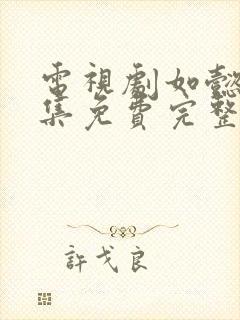 電視劇如懿
集免費完整
許戈良